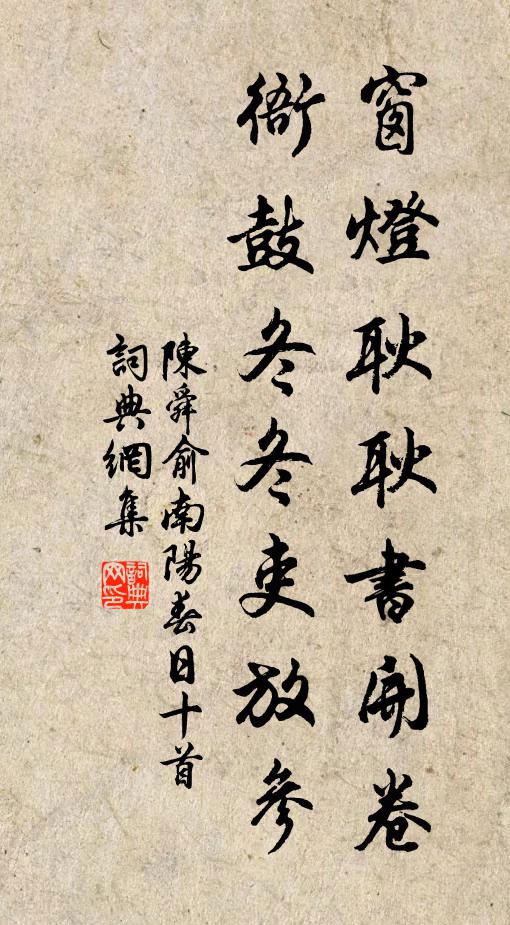 窗燈耿耿書開卷
衙鼓冬冬吏放參
陳舜俞南陽春日十首
詞典網集
詞典
网印